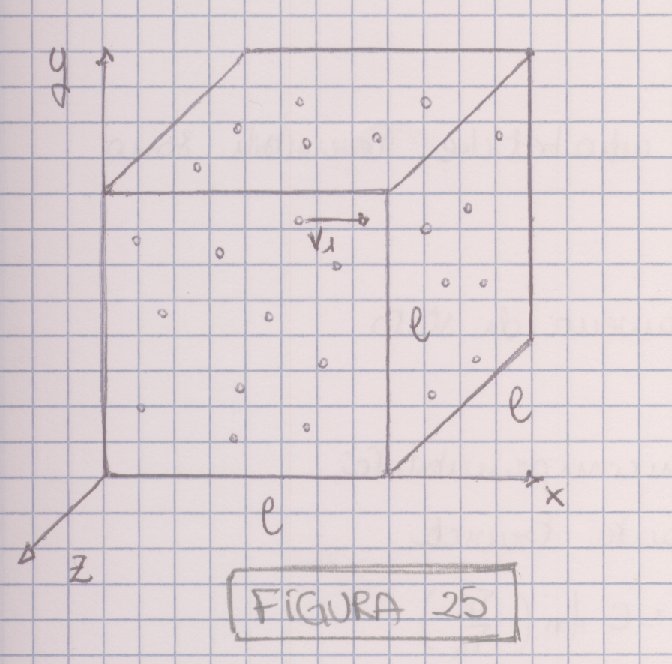 y
V1
l
l
x
l
z
FIGURA 25